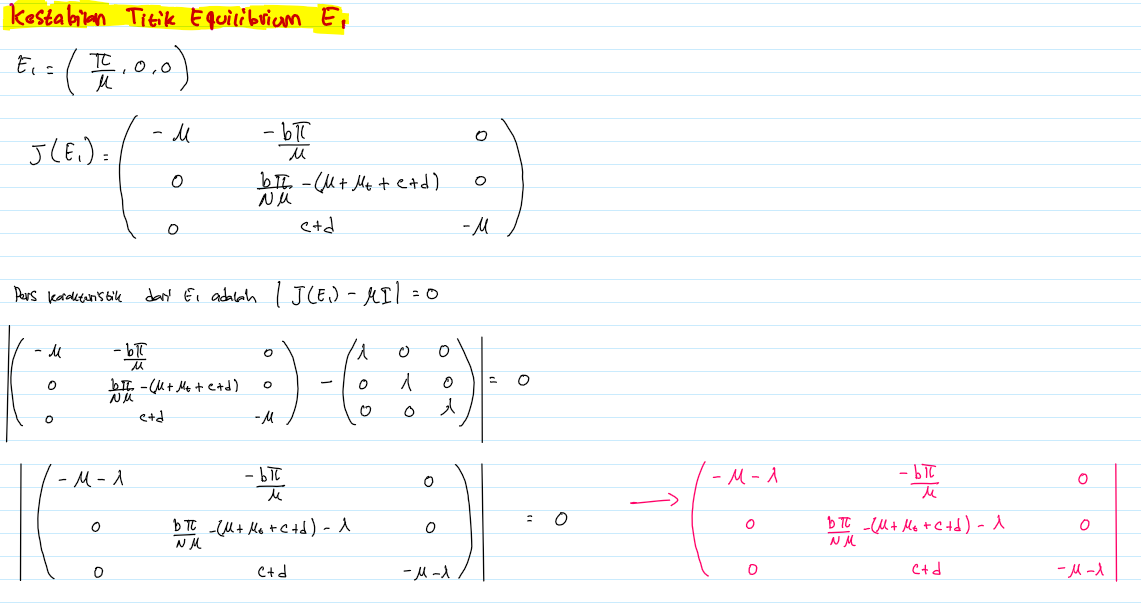 Kestabilan Titik Equilibrium E₁
E₁ = ( π/μ , 0, 0 )
J(E₁) = ( -μ   -bπ/μ   0
0   bπ/Nμ -(μ+μₜ+c+d)   0
0   c+d   -μ )
Pers karakteristik dari E₁ adalah | J(E₁) - μI | = 0
| ( -μ   -bπ/μ   0 ) - ( λ   0   0 ) |
| ( 0   bπ/Nμ -(μ+μₜ+c+d)   0 ) - ( 0   λ   0 ) | = 0
| ( 0   c+d   -μ ) - ( 0   0   λ ) |
| ( -μ-λ   -bπ/μ   0 ) |   ( -μ-λ   -bπ/μ   0 |
| ( 0   bπ/Nμ -(μ+μₜ+c+d)-λ   0 ) | = 0 → ( 0   bπ/Nμ -(μ+μₜ+c+d)-λ   0 |
| ( 0   c+d   -μ-λ ) |   ( 0   c+d   -μ-λ |